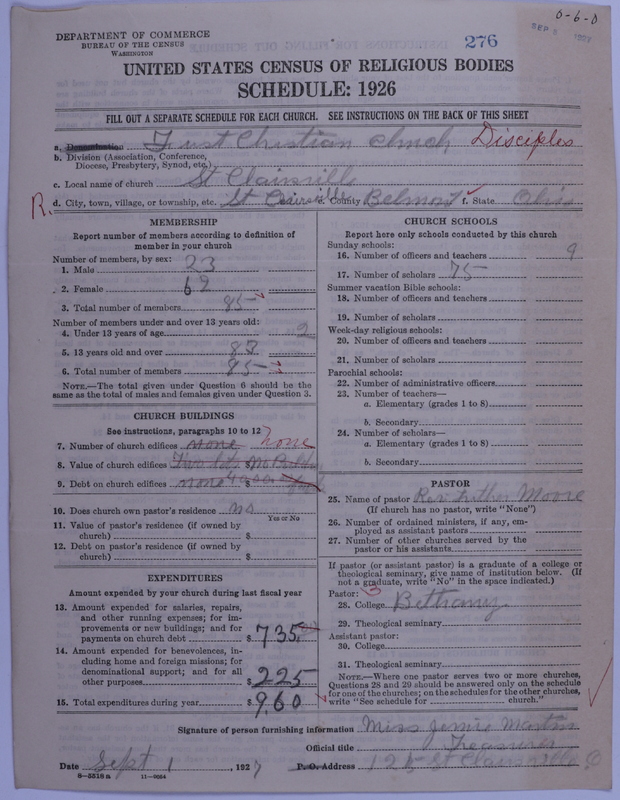 0-6-0
DEPARTMENT OF COMMERCE
BUREAU OF THE CENSUS
WASHINGTON
276
SEP
UNITED STATES CENSUS OF RELIGIOUS BODIES
SCHEDULE: 1926
FILL OUT A SEPARATE SCHEDULE FOR EACH CHURCH. SEE INSTRUCTIONS ON THE BACK OF THIS SHEET
a. Denomination First Christian Church Disciples
b. Division (Association, Conference,
Diocese, Presbytery, Synod, etc.)
c. Local name of church St Clairsville
R. d. City, town, village, or township, etc. St Clairsville e. County Belmont f. State Ohio
MEMBERSHIP
Report number of members according to definition of
member in your church
Number of members, by sex:
1. Male 23
2. Female 62
3. Total number of members 85
Number of members under and over 13 years old:
4. Under 13 years of age 2
5. 13 years old and over 83
6. Total number of members 85
NOTE.—The total given under Question 6 should be the
same as the total of males and females given under Question 3.
CHURCH BUILDINGS
See instructions, paragraphs 10 to 12
7. Number of church edifices none none
8. Value of church edifices Two lots $ No Build
9. Debt on church edifices none
10. Does church own pastor's residence no
Yes or No
11. Value of pastor's residence (if owned by
church) $
12. Debt on pastor's residence (if owned by
church) $
EXPENDITURES
Amount expended by your church during last fiscal year
13. Amount expended for salaries, repairs,
and other running expenses; for im-
provements or new buildings; and for
payments on church debt $ 735
14. Amount expended for benevolences, in-
cluding home and foreign missions; for
denominational support; and for all
other purposes $ 225
15. Total expenditures during year $ 960
CHURCH SCHOOLS
Report here only schools conducted by this church
Sunday schools:
16. Number of officers and teachers 9
17. Number of scholars 75
Summer vacation Bible schools:
18. Number of officers and teachers
19. Number of scholars
Week-day religious schools:
20. Number of officers and teachers
21. Number of scholars
Parochial schools:
22. Number of administrative officers
23. Number of teachers—
a. Elementary (grades 1 to 8)
b. Secondary
24. Number of scholars—
a. Elementary (grades 1 to 8)
b. Secondary
PASTOR
25. Name of pastor Rev Luther Moore
(If church has no pastor, write "None")
26. Number of ordained ministers, if any, em-
ployed as assistant pastors
27. Number of other churches served by the
pastor or his assistants
If pastor (or assistant pastor) is a graduate of a college or
theological seminary, give name of institution below. (If
not a graduate, write "No" in the space indicated.)
Pastor: 3
28. College Bethany
29. Theological seminary
Assistant pastor:
30. College
31. Theological seminary
NOTE.—Where one pastor serves two or more churches,
Questions 28 and 29 should be answered only on the schedule
for one of the churches; on the schedules for the other churches,
write "See schedule for church."
Signature of person furnishing information Miss Jennie Martin
Official title Treasurer
Date Sept 1, 1927 P. O. Address 125 St Clairsville O
8—5518 a 11—9054